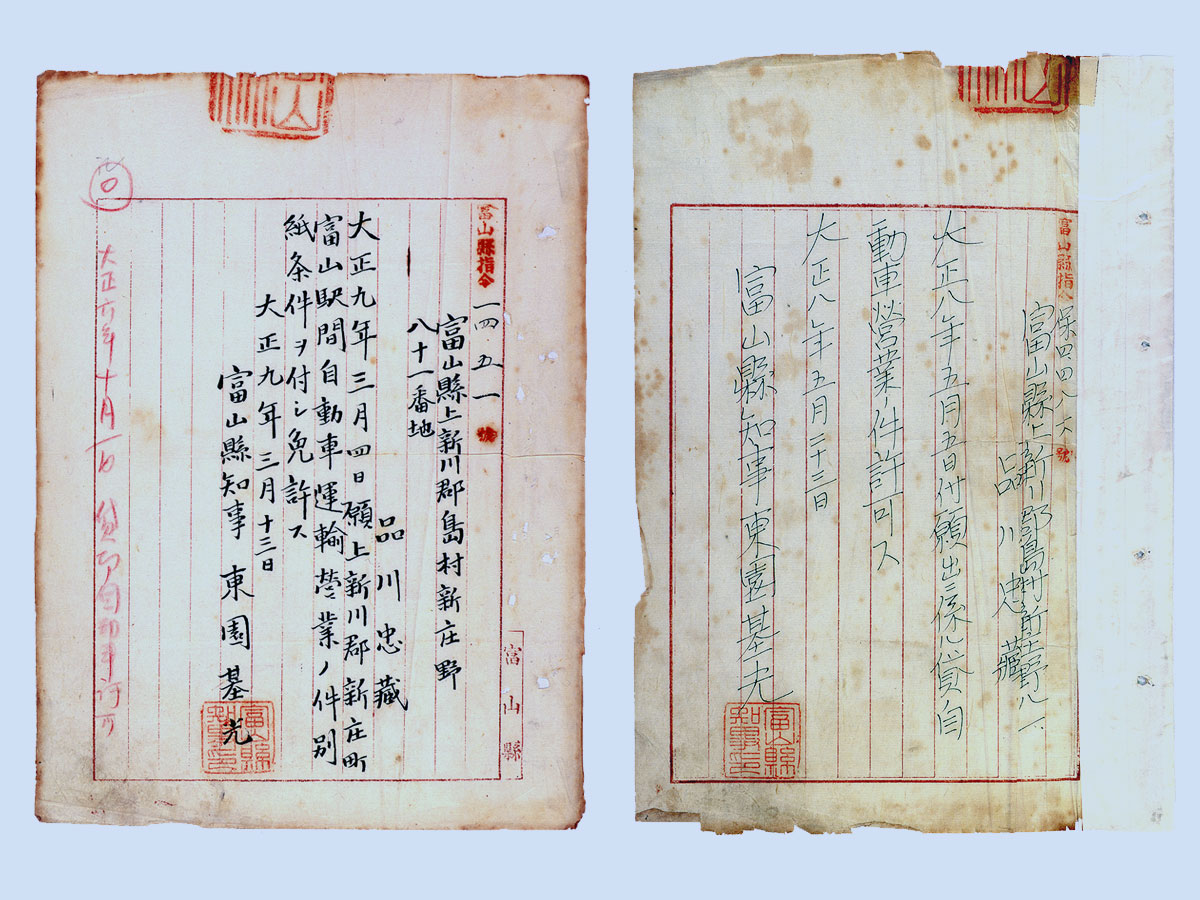 富山縣指令
一四五一號
富山縣上新川郡島村新庄野
八十一番地
品川忠藏
大正九年三月四日願上新川郡新庄町
富山駅間自動車運輸営業ノ件別
紙条件ヲ付シ免許ス
大正九年三月十三日
富山縣知事東園基光
富山縣知事之印
富山縣
大正六年十月一日貸切自動車許可
富山縣指令保四四八六號
富山縣上新川郡島村新庄野八一
品川忠藏
大正八年五月五日付願出ニ係ル貸自
動車營業ノ件許可ス
大正八年五月二十三日
富山縣知事東園基光
富山縣知事之印